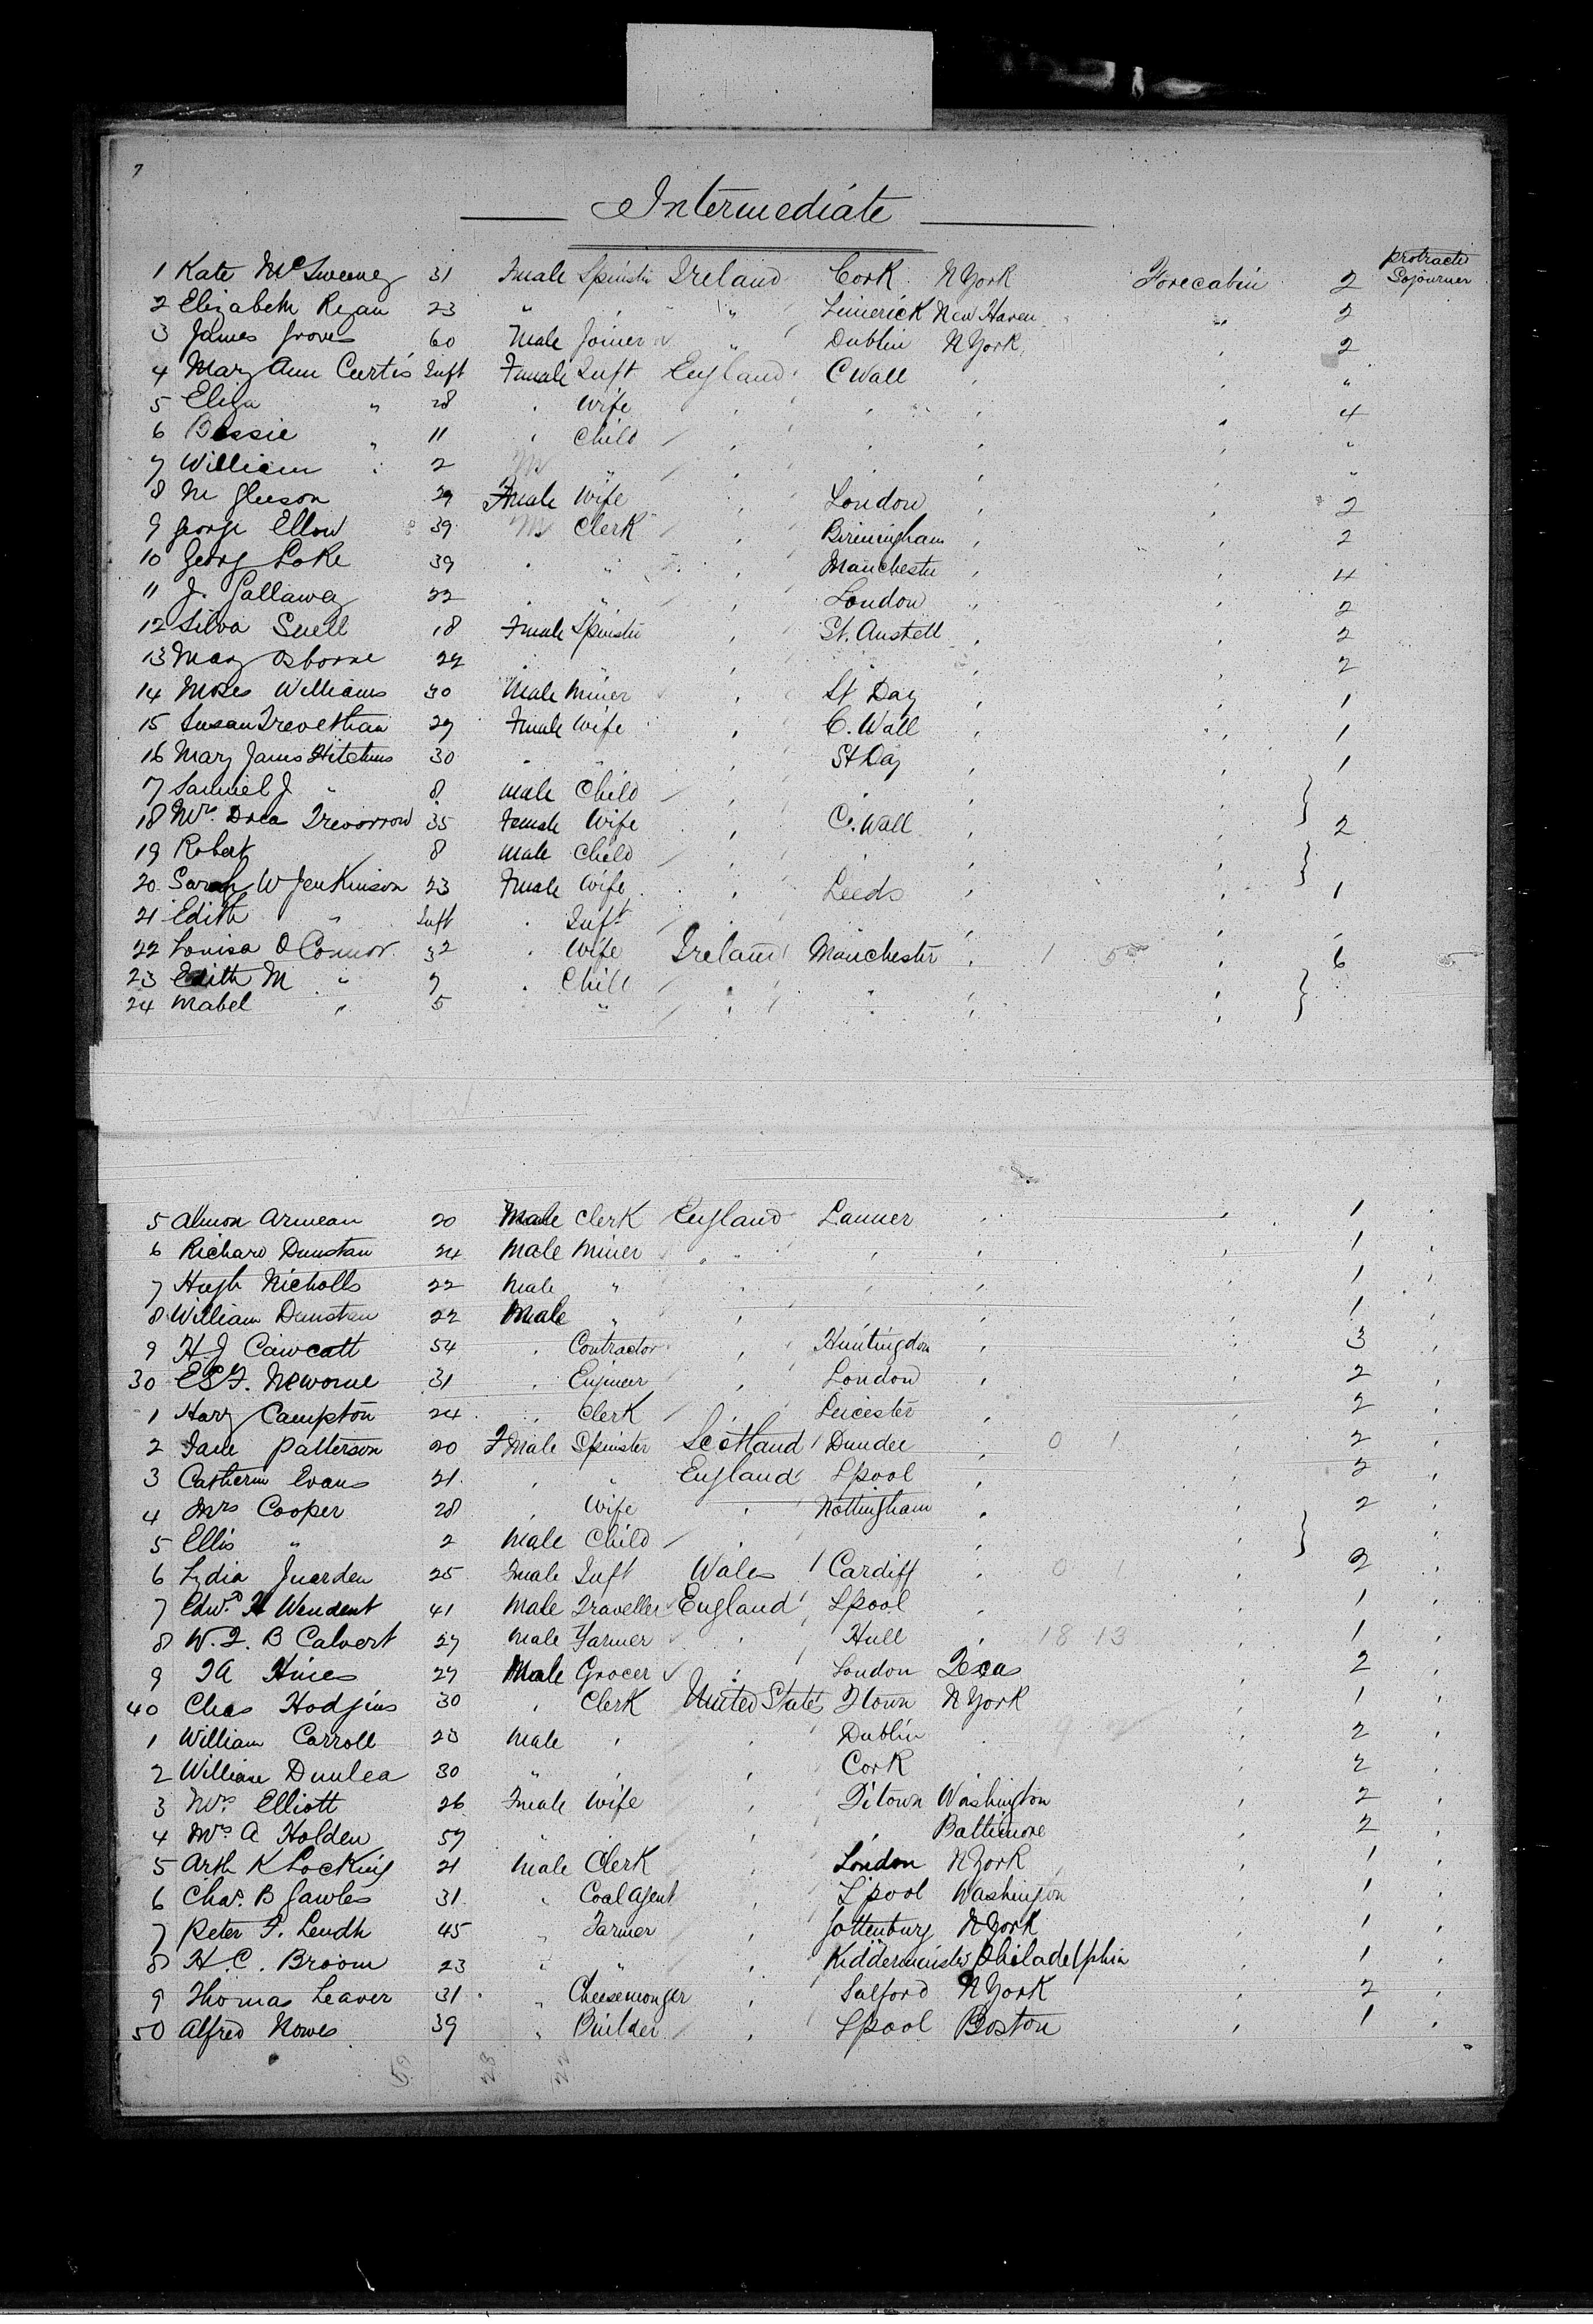 Intermediate
protracted
1 Kate McSweeney 31 Fmale Spinster Ireland Cork N York Forecabin 2 Sojourner
2 Elizabeth Ryan 23 " " " Limerick New Haven " 2
3 James Groves 60 Male Joiner " Dublin N York 2
4 Mary Ann Curtis Inft Female Inft England C Wall "
5 Eliza " 28 Wife 4
6 Bessie " 11 Child "
7 William " 2 M " "
8 M Gleeson 29 Fmale Wife London 2
9 George Ellow 39 M Clerk Birmingham 2
10 Georg Loke 39 " Manchester 4
11 J. Gallaway 22 " London 2
12 Silva Snell 18 Fmale Spinster St. Austell 2
13 Mary Osborne 22 " 2
14 Moses Williams 30 Male Miner St Day 1
15 Susan Trevethan 29 Fmale Wife C. Wall 1
16 Mary James Hitchens 30 " St Day 1
17 Samuel J " 8 Male Child
18 Mrs. Drea Trevorrow 35 Female Wife C. Wall 2
19 Robert 8 Male Child
20 Sarah W Jenkinson 23 Fmale Wife Leeds 1
21 Edith " Inft Inft
22 Louisa O Connor 32 Wife Ireland Manchester 1 5 6 5
23 Edith M " 7 Child "
24 Mabel " 5 " "
5 Almon Armean 20 Male Clerk England Lanner 1
6 Richard Dunstan 24 Male Miner " 1
7 Hugh Nicholls 22 Male " 1
8 William Dunstan 22 Male " 1
9 H J Cawcatt 54 Contractor Huntingdon 3
30 Newome 31 Engineer London 2
1 Harry Campton 24 Clerk Leicester 2
2 Jane Patterson 20 Fmale Spinster Scotland Dundee 0 1 2
3 Catherin Evans 21 " England Lpool 2
4 Mrs Cooper 28 Wife Nottingham 2
5 Ellis " 2 Male Child
6 Lydia Juarden 25 Fmale Inft Wales Cardiff 0 1 2
7 Edwd H Wendent 41 Male Traveller England Lpool 1
8 W. J. B Calvert 27 Male Farmer Hull 18 13 1
9 Hines 27 Male Grocer London Texas 2
40 Chas Hodgins 30 Clerk United States Town N York 1
1 William Carroll 23 Male Dublin 2
2 William Dunlea 30 " Cork 2
3 Mrs. Elliott 26 Fmale Wife Washington 2
4 Mrs. A Holden 57 " Baltimore 2
5 Arth K Locking 21 Male Clerk London N York 1
6 Chas. B Gawles 31 " Coal Agent L'pool Washington 1
7 Peter F. Lendh 45 " Farmer Gottenburg N York 1
8 H. C. Broom 23 " " Kidderminster Philadelphia 1
9 Thomas Leaver 31 " Cheesemonger Salford N York 2
50 Alfred Nowes 39 " Builder Lpool Boston 1
50 28 22